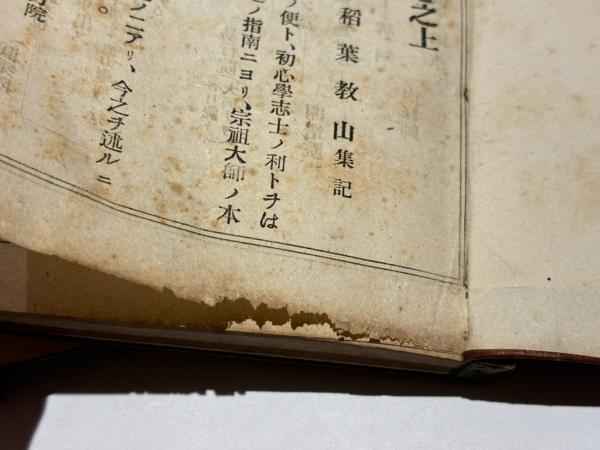 之上
稻葉教山集記
ノ便ト、初心學志士ノ利トヲは
ノ指南ニヨリ、宗祖大師ノ本
ノニアリ、今之ヲ述ルニ
。
院